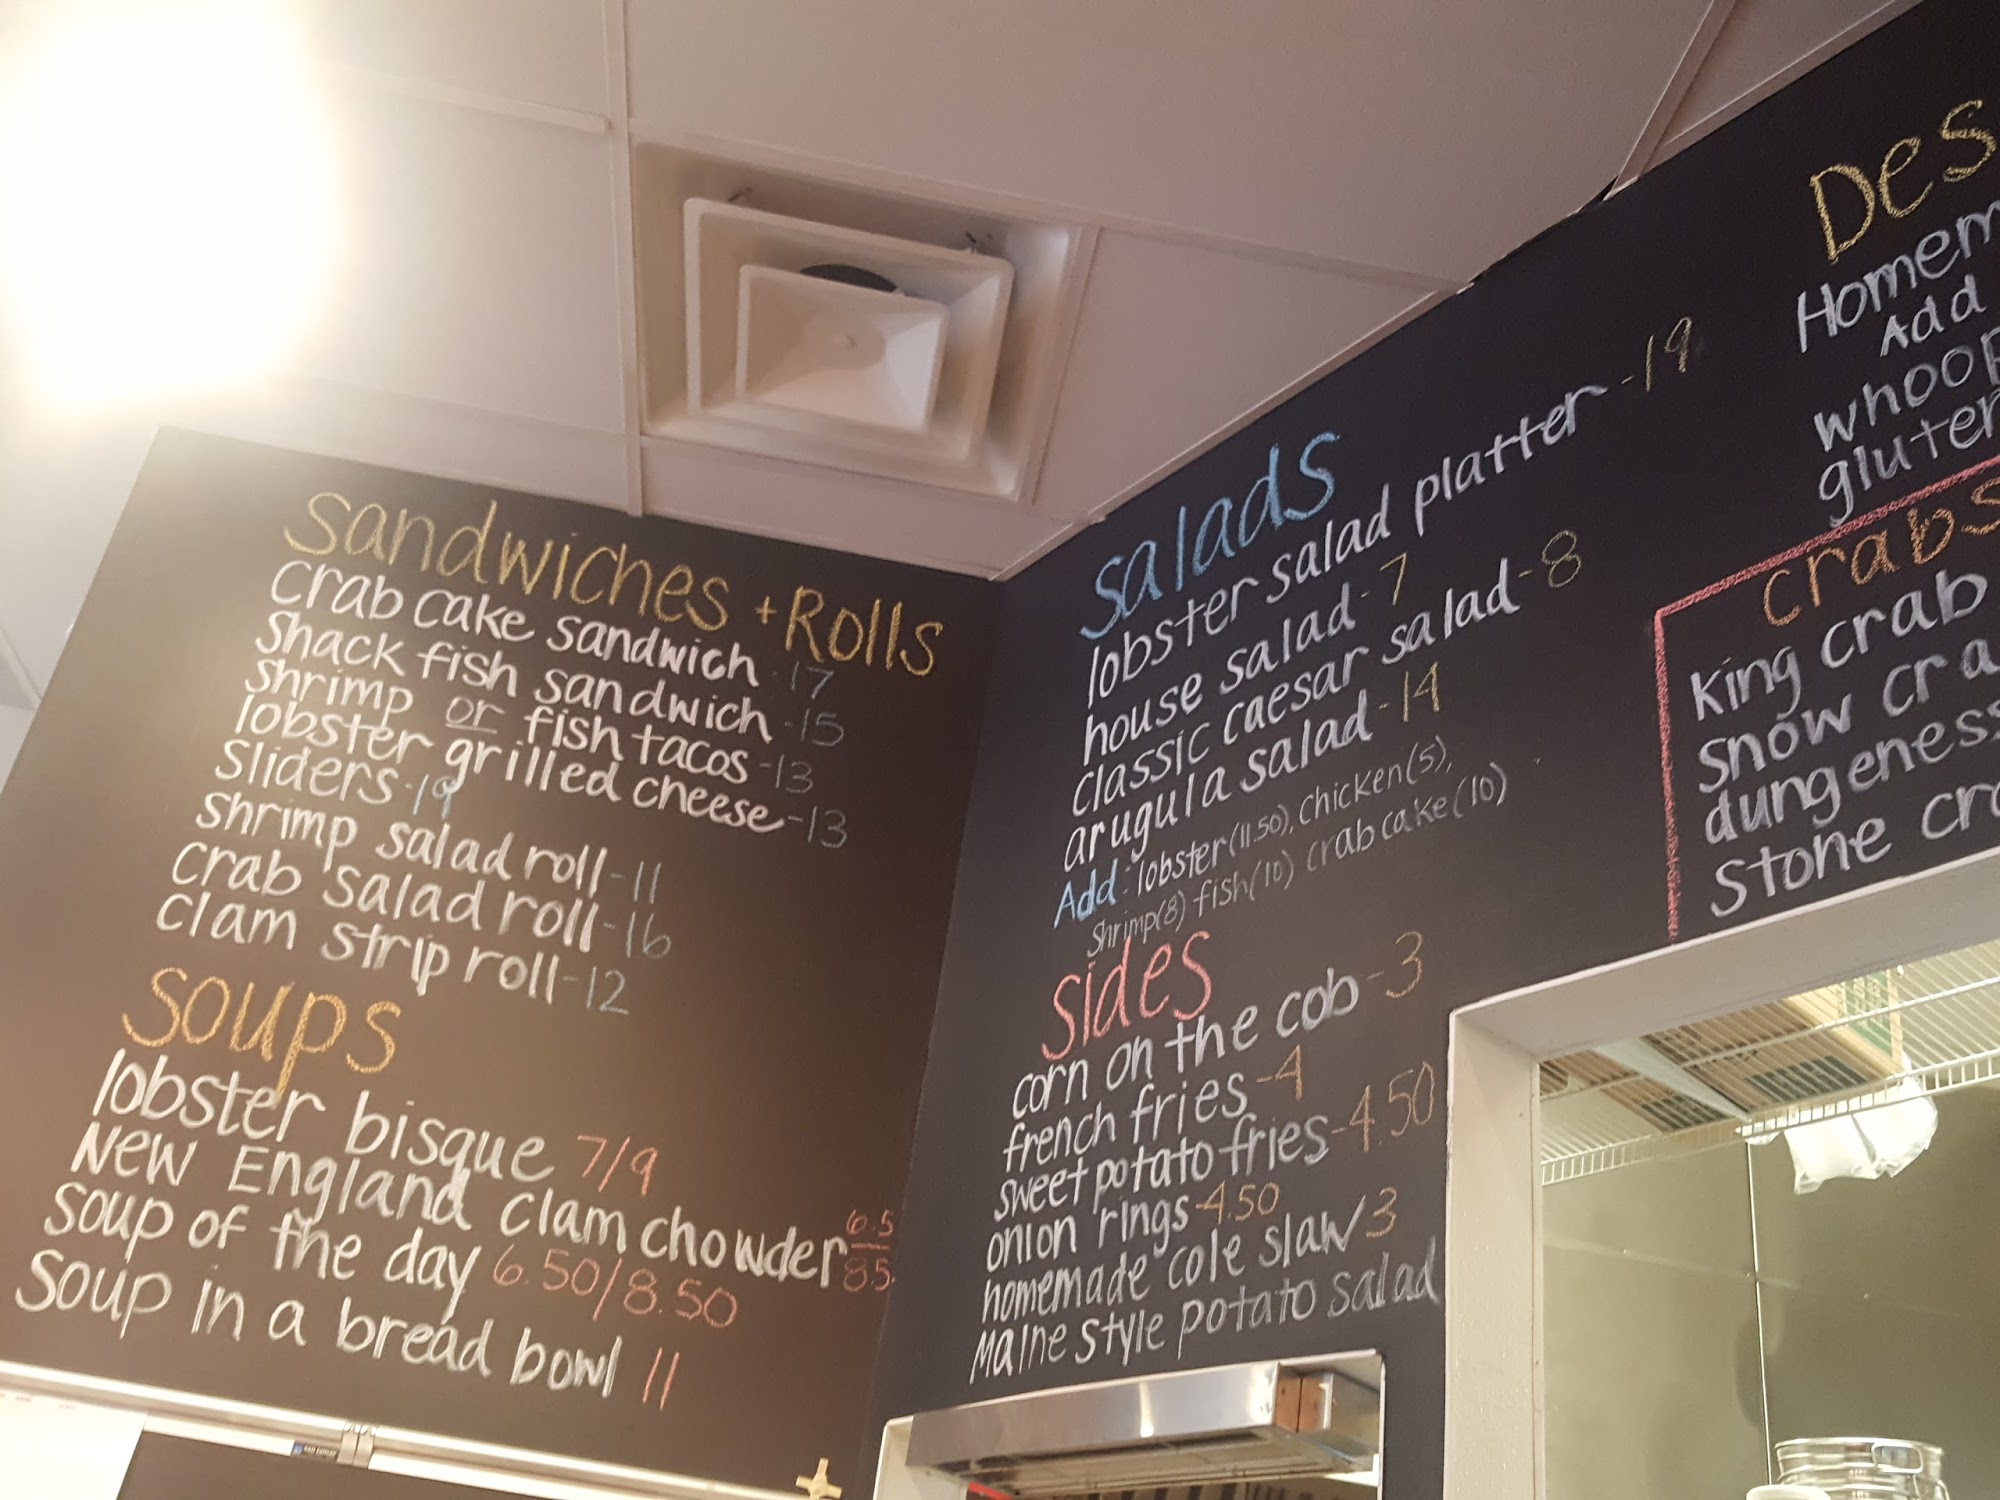 Sandwiches + Rolls
crab cake sandwich - 17
shack fish sandwich - 15
shrimp or fish tacos - 13
lobster grilled cheese - 13
sliders - 19
shrimp salad roll - 11
crab salad roll - 16
clam strip roll - 12
Soups
lobster bisque 7/9
New England clam chowder 6.5/8.5
soup of the day 6.50/8.50
Soup in a bread bowl 11
Salads
lobster salad platter - 19
house salad - 7
classic caesar salad - 8
arugula salad - 14
Add: lobster (11.50), chicken (5),
shrimp (8) fish (10) crab cake (10)
Sides
corn on the cob - 3
french fries - 4
sweet potato fries - 4.50
onion rings - 4.50
homemade cole slaw 3
Maine style potato salad
Des
Homem
Add
whoop
gluten
crabs
king crab
snow cra
dungeness
stone cra